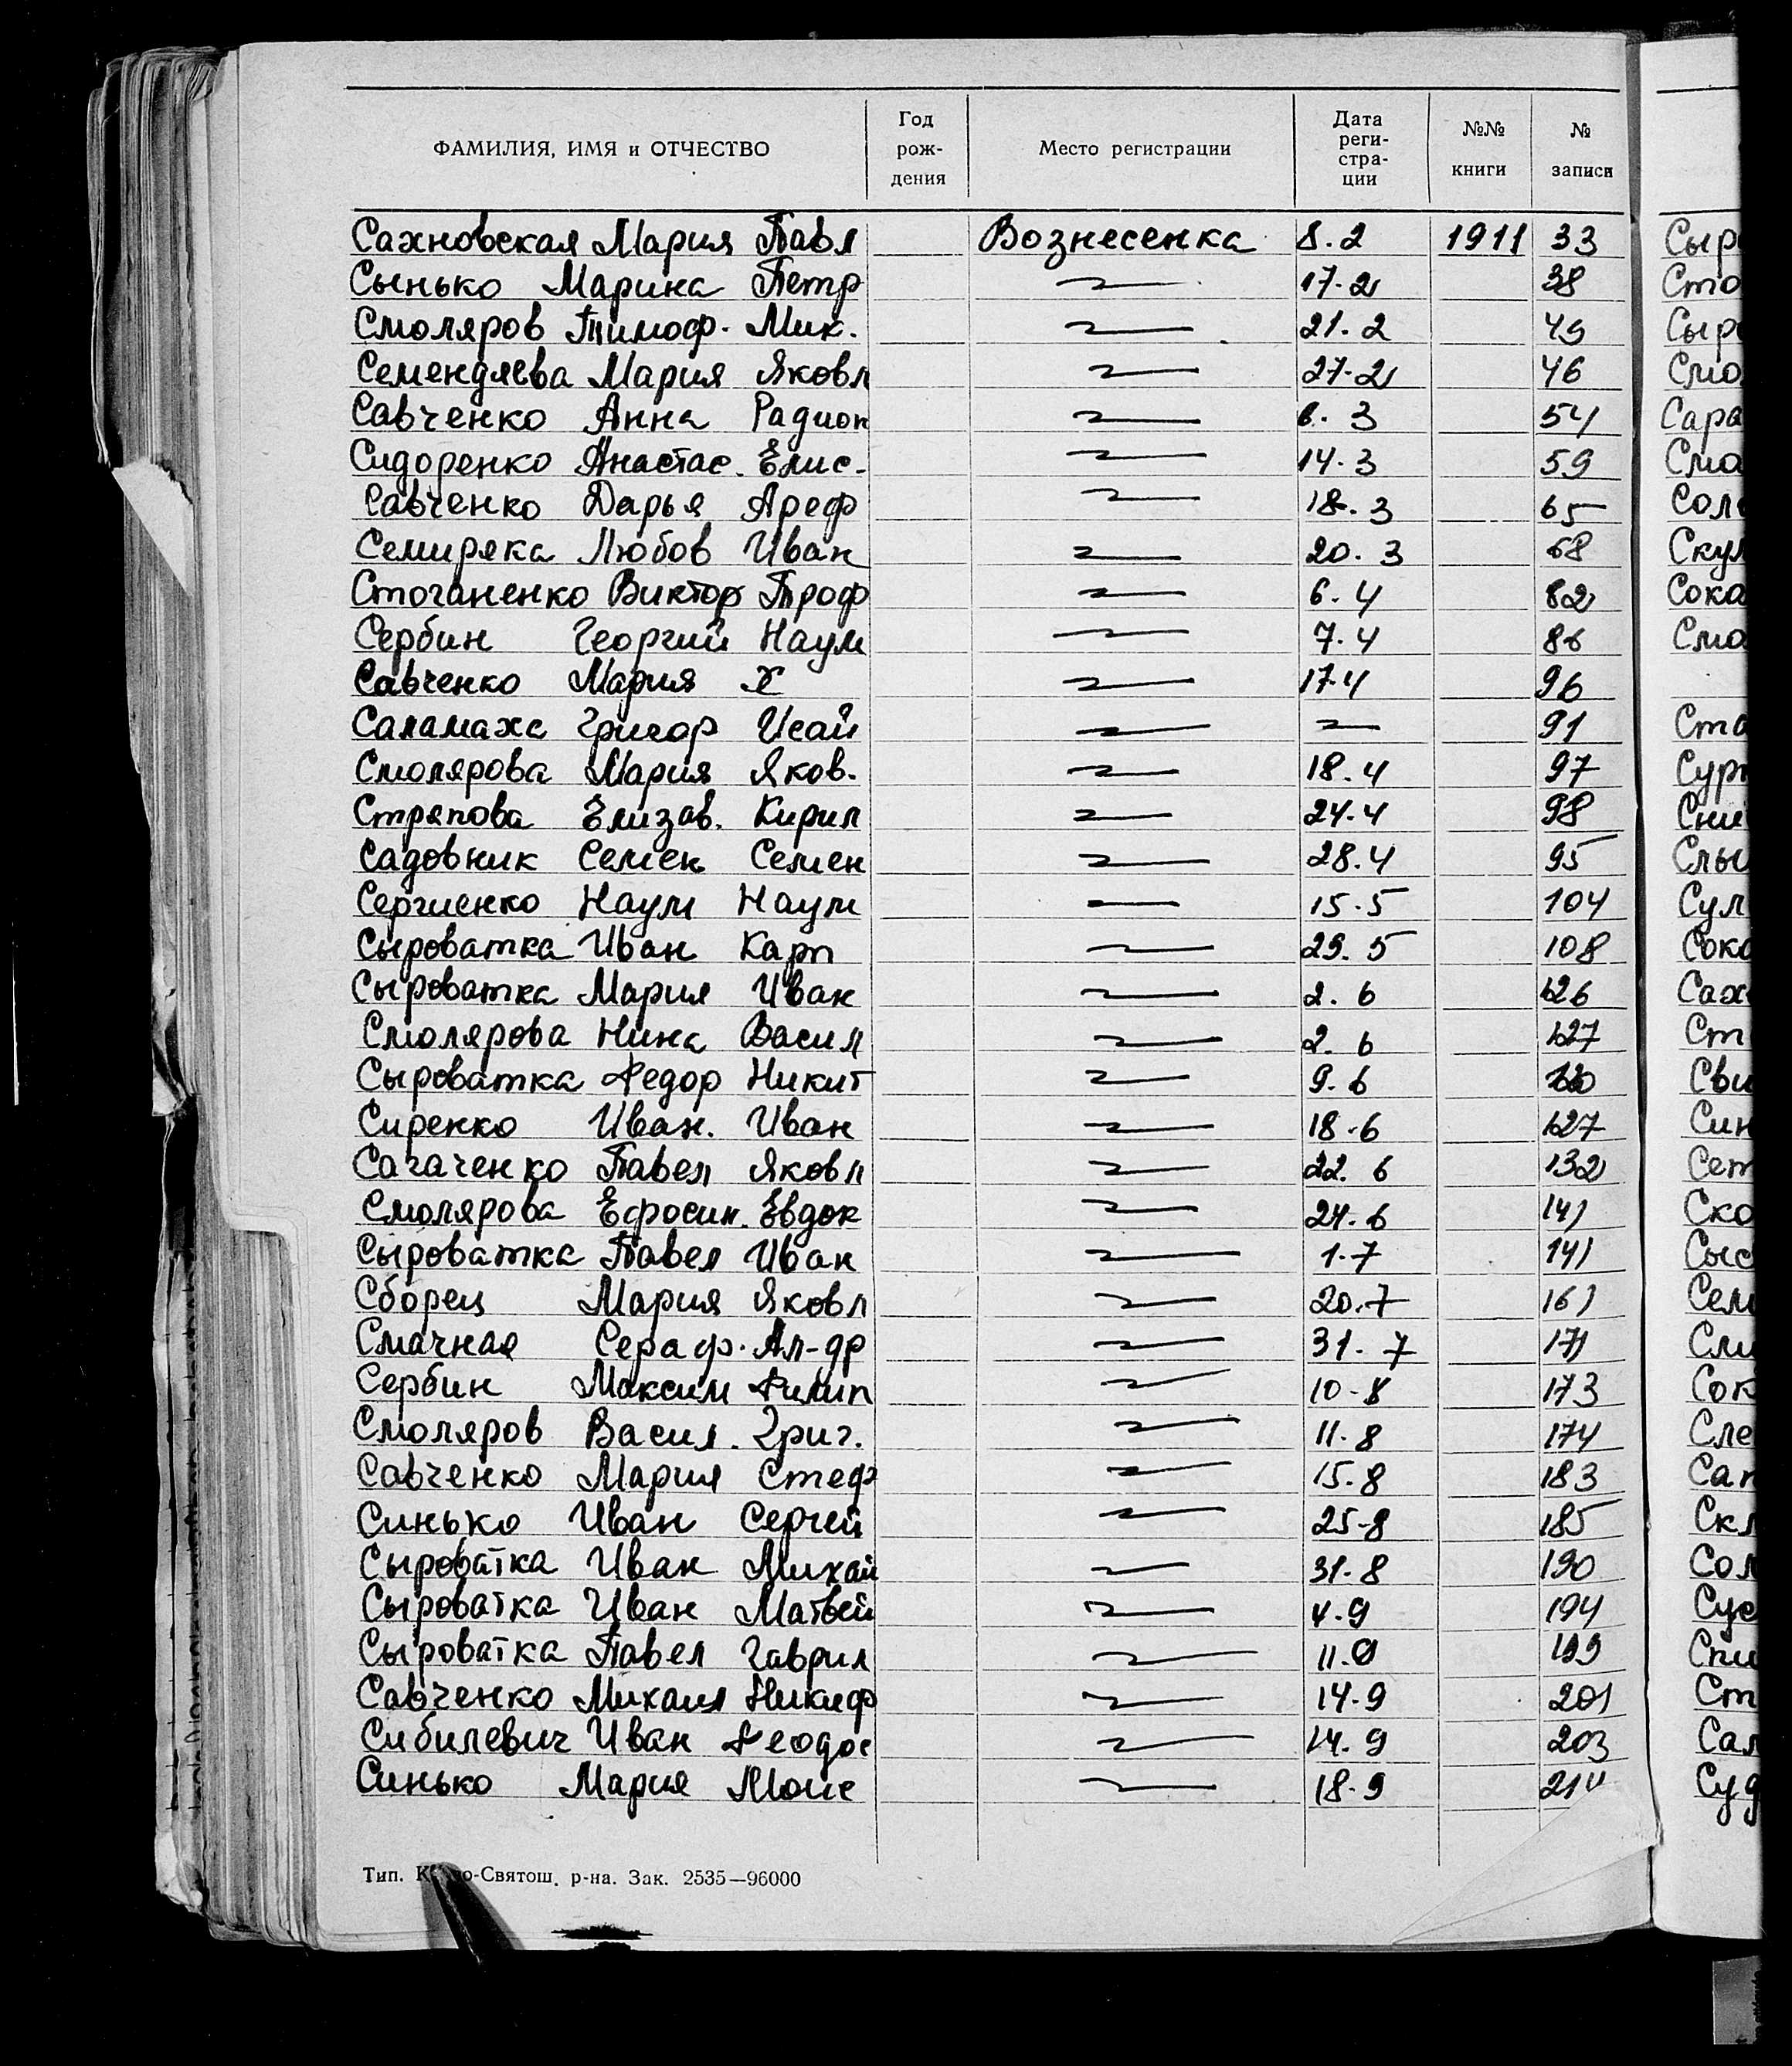 ФАМИЛИЯ, ИМЯ и ОТЧЕСТВО Год рож- дения Место регистрации Дата реги- стра- ции №№ книги № записи
Сахновская Мария Павл Вознесенка 8.2 1911 33
Сынько Марина Петр 17.2 38
Смоляров Тимоф. Мих. 21.2 49
Семендяева Мария Яковл 27.2 46
Савченко Анна Радион 6.3 54
Сидоренко Анастас. Елис. 14.3 59
Савченко Дарья Ареф 18.3 65
Семиряка Любов Иван 20.3 68
Стоганенко Виктор Троф 6.4 82
Сербин Георгий Наум 7.4 86
Савченко Мария Х 17.4 96
Саламаха Григор Исай 91
Смолярова Мария Яков. 18.4 97
Стряпова Елизав. Кирил 24.4 98
Садовник Семен Семен 28.4 95
Сергиенко Наум Наум 15.5 104
Сыроватка Иван Карп 29.5 108
Сыроватка Мария Иван 2.6 126
Смолярова Нина Васил 2.6 127
Сыроватка Федор Никит 9.6
Сиренко Иван. Иван 18.6 127
Сагаченко Павел Яковл 22.6 132
Смолярова Ефросин. Евдок 24.6 141
Сыроватка Павел Иван 1.7 141
Сборец Мария Яковл 20.7 161
Смачная Сераф. Ал-др 31.7 171
Сербин Максим Филип 10-8 173
Смоляров Васил. Григ. 11.8 174
Савченко Мария Стеф 15.8 183
Синько Иван Сергей 25-8 185
Сыроватка Иван Михай 31-8 190
Сыроватка Иван Матвей 4.9 194
Сыроватка Павел Гаврил 11.9 199
Савченко Михаил Никиф 14.9 201
Сибилевич Иван Феодос 14.9 203
Синько Мария Моис 18.9
Тип. К во-Святош. р-на. Зак. 2535—96000